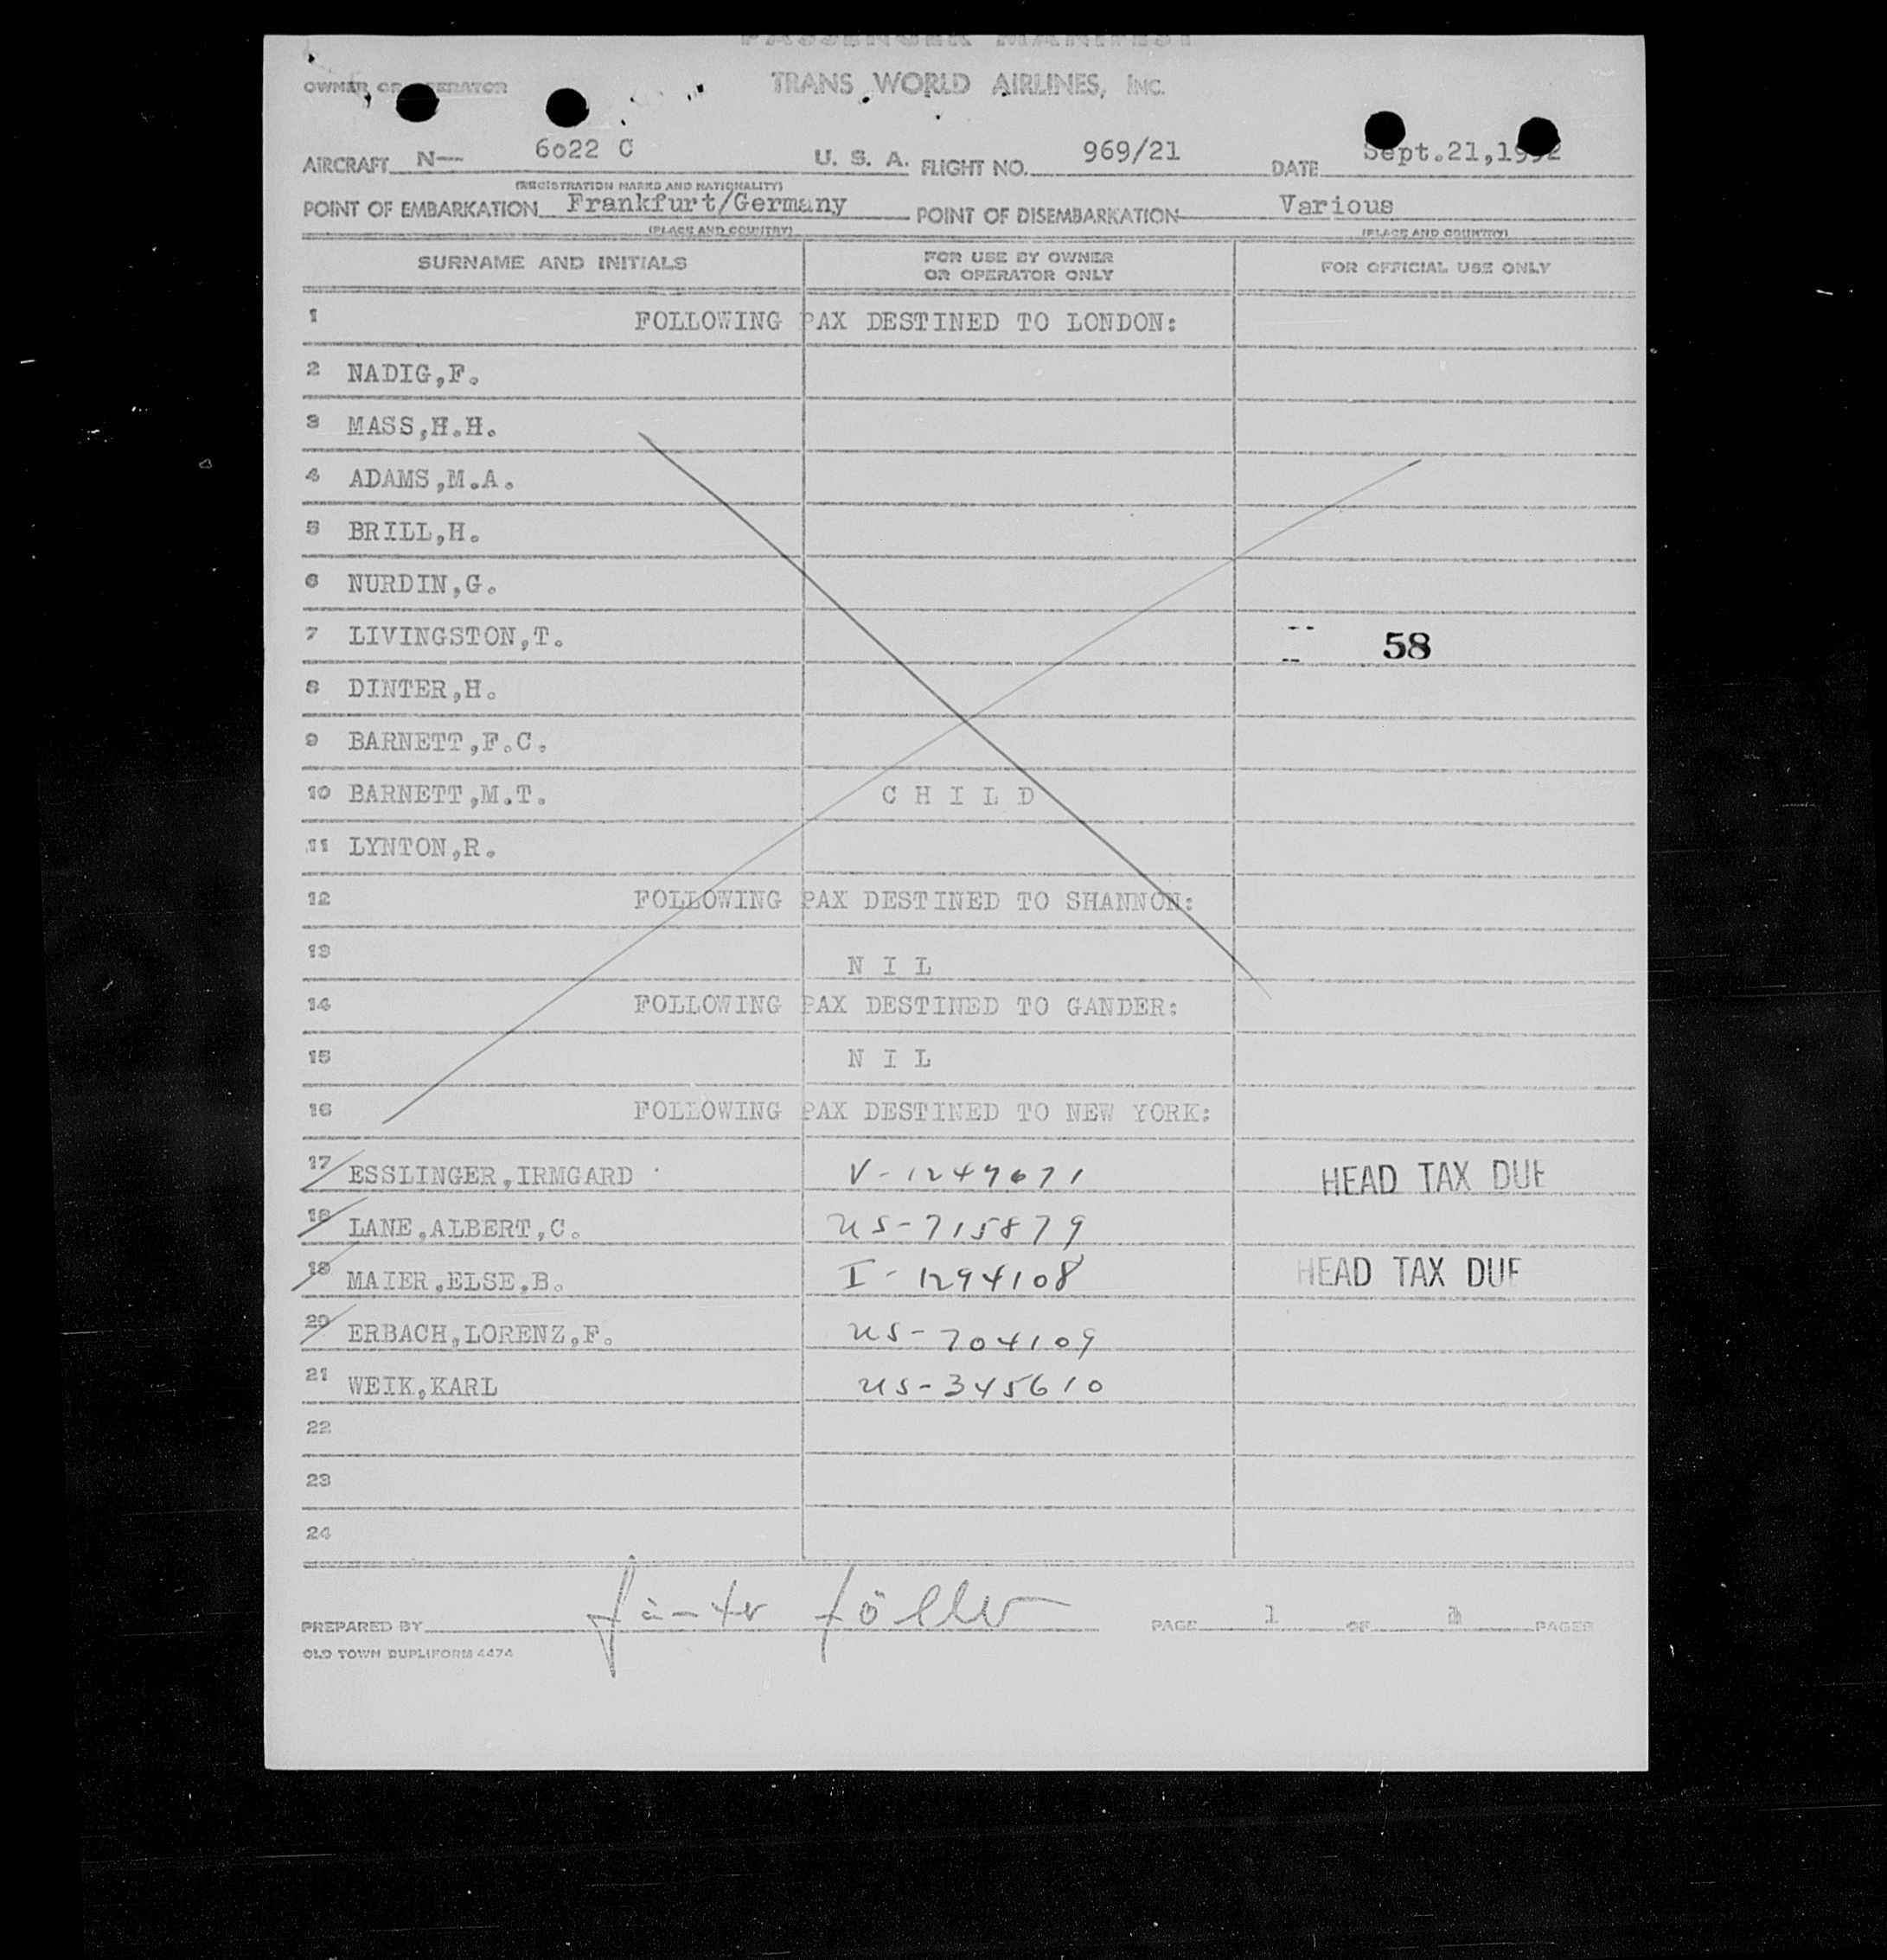 PASSENGER MANIFEST
OWNER OR OPERATOR TRANS WORLD AIRLINES, INC.
AIRCRAFT N— 6022 C U. S. A. FLIGHT NO. 969/21 DATE Sept.21,1952
(REGISTRATION MARKS AND NATIONALITY)
POINT OF EMBARKATION Frankfurt/Germany POINT OF DISEMBARKATION Various
(PLACE AND COUNTRY) (PLACE AND COUNTRY)
SURNAME AND INITIALS FOR USE BY OWNER OR OPERATOR ONLY FOR OFFICIAL USE ONLY
1 FOLLOWING PAX DESTINED TO LONDON:
2 NADIG,F.
3 MASS,H.H.
4 ADAMS,M.A.
5 BRILL,H.
6 NURDIN,G.
7 LIVINGSTON,T. 58
8 DINTER,H.
9 BARNETT,F.C.
10 BARNETT,M.T. C H I L D
11 LYNTON,R.
12 FOLLOWING PAX DESTINED TO SHANNON:
13 N I L
14 FOLLOWING PAX DESTINED TO GANDER:
15 N I L
16 FOLLOWING PAX DESTINED TO NEW YORK:
17 ESSLINGER,IRMGARD V-1247671 HEAD TAX DUE
18 LANE,ALBERT,C. US-715879
19 MAIER,ELSE,B. I-1294108 HEAD TAX DUE
20 ERBACH,LORENZ,F. US-704109
21 WEIK,KARL US-345610
22
23
24
PREPARED BY PAGE 1 OF PAGES
OLD TOWN DUPLIFORM 4474